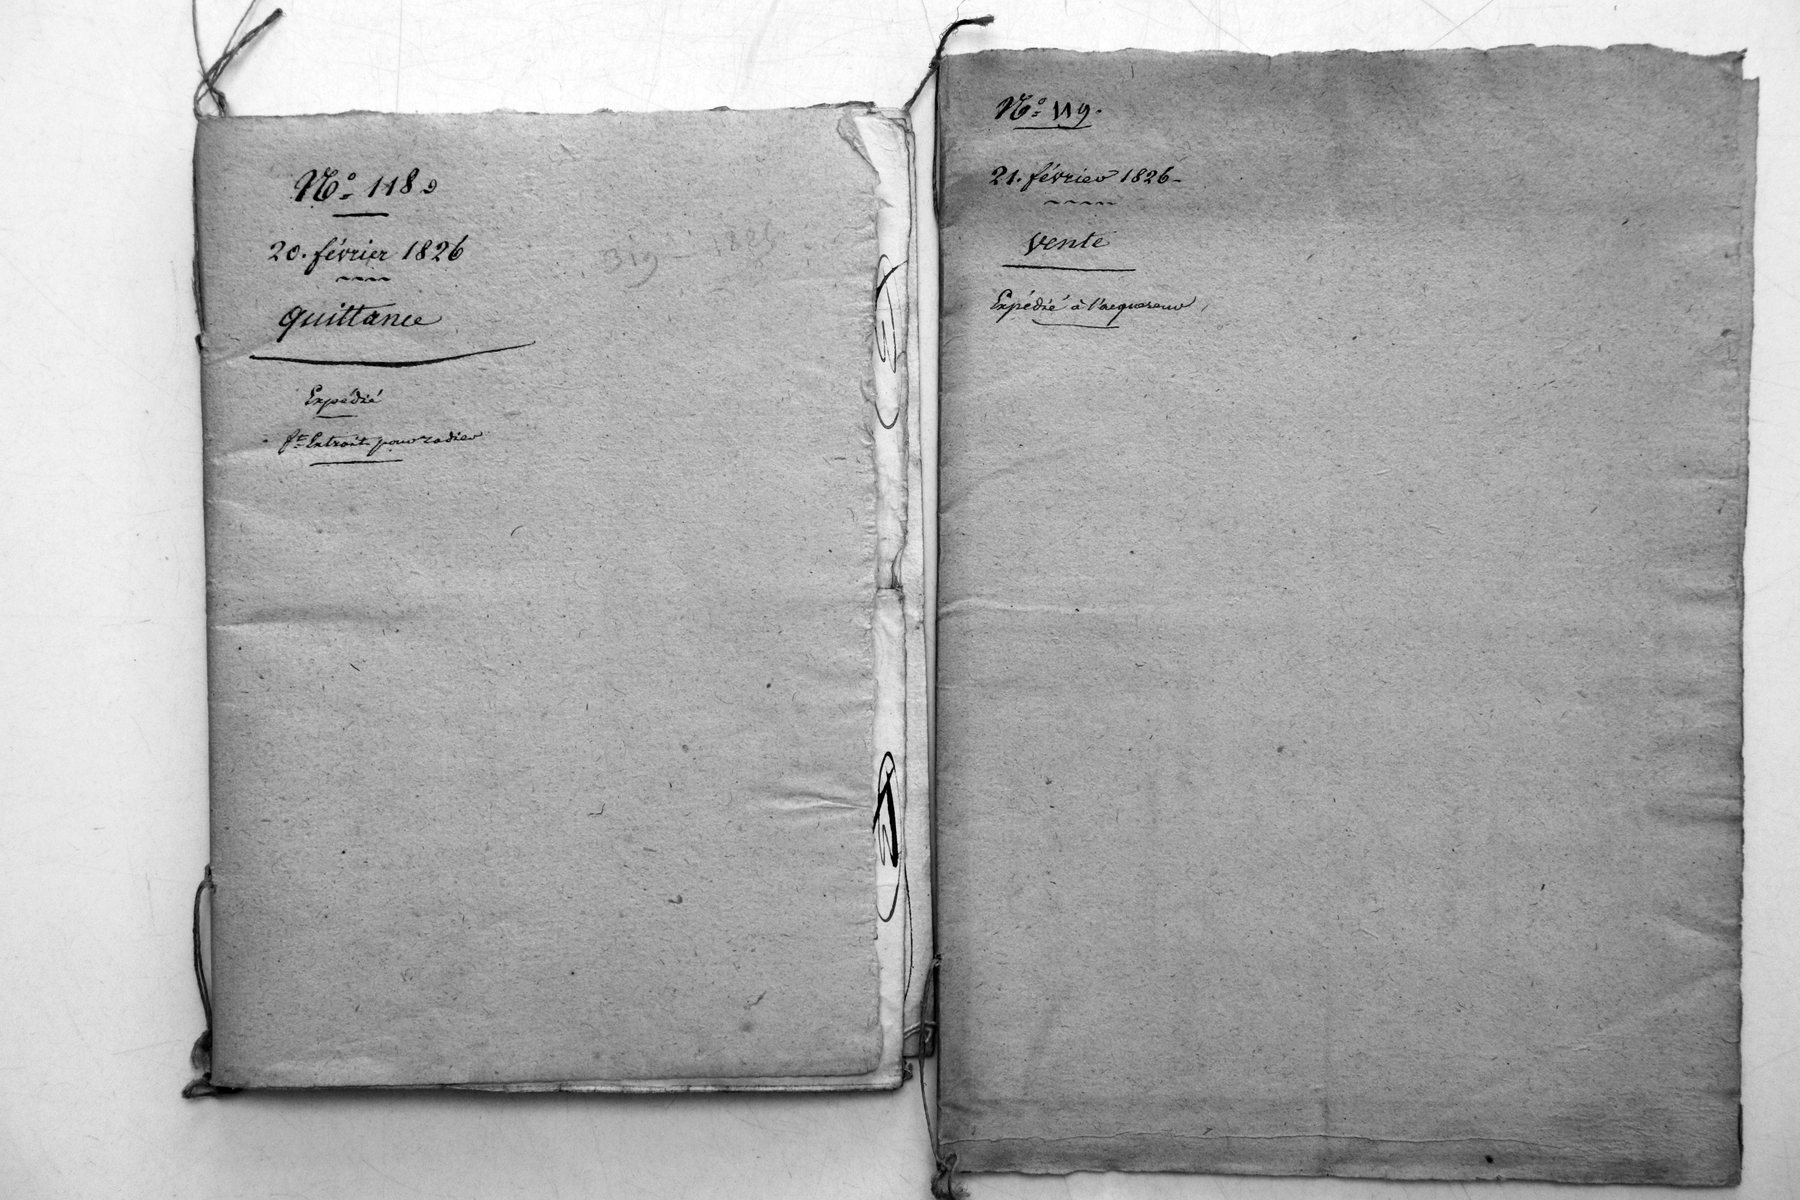 N.º 118
20. février 1826
quittance
Expédié
f.t Extrait pour radier
N.º 119.
21. février 1826
vente
Expédié à l'acquereur